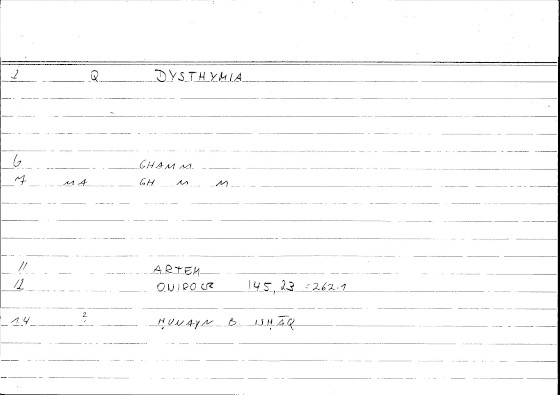 1 Q DYSTHYMIA
6 GHAMM
7 MA GH M M
11 ARTEM
12 ONIROCR 145,23 = 262.1
14 2 ḤUNAYN B. ISḤĀQ